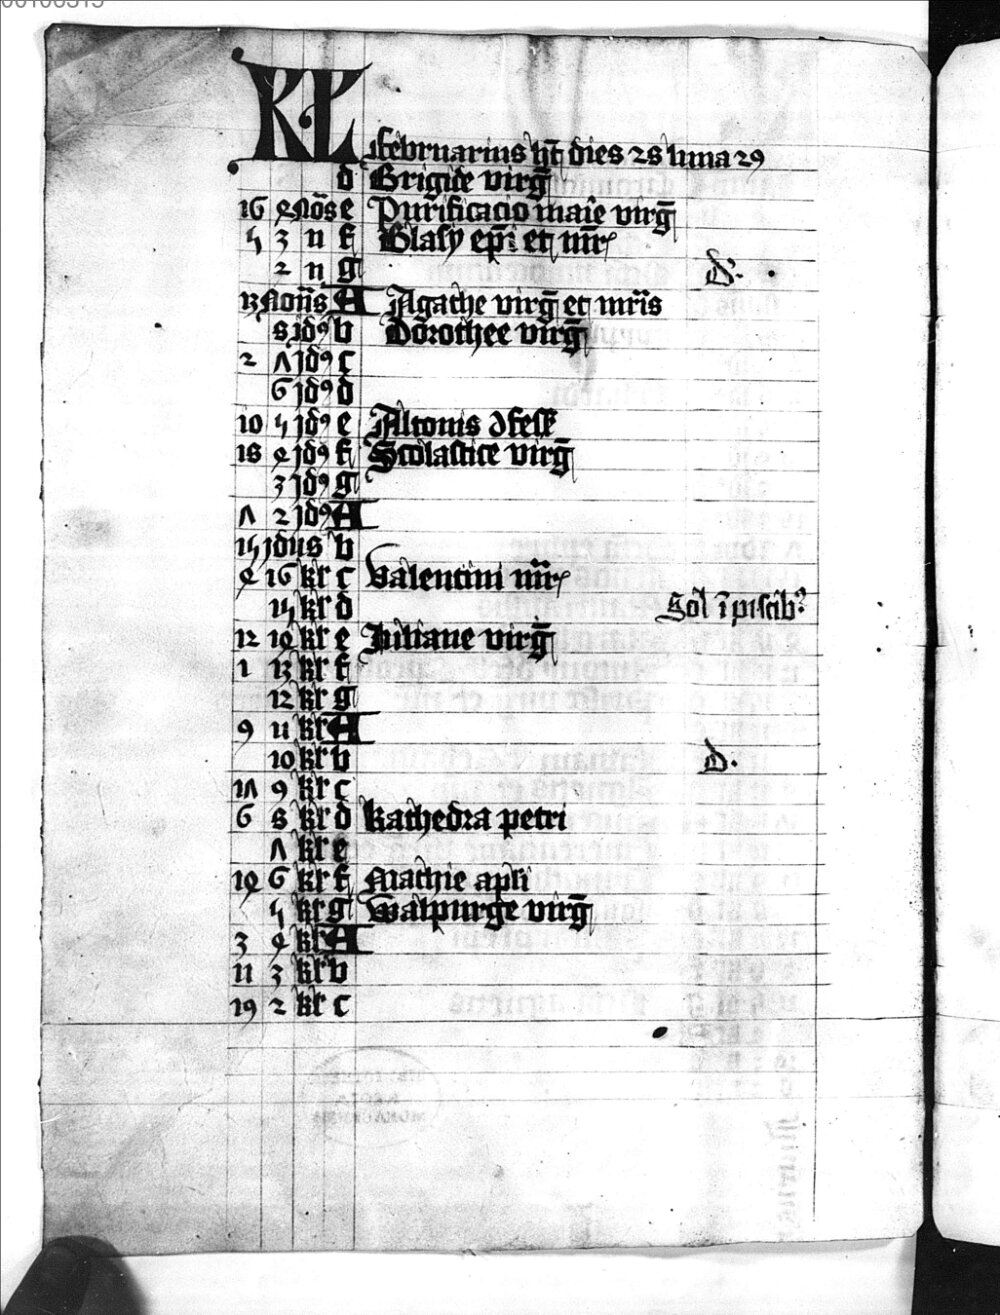 00100515
KL februarius hꝫ dies 28 luna 29
d Brigide virgī
16 4 Nōs e Purificacio marie virgī
5 3 n f Blasy ep̄i et mr̄
2 n g D.
13 Non̄s A Agathe virgī et mr̄is
8 jdꝰ b Dorothee virgī
2 7 jdꝰ c
6 jdꝰ d
10 5 jdꝰ e Altonis ɔfess
18 4 jdꝰ f Scolastice virgī
3 jdꝰ g
7 2 jdꝰ A
15 jdus b
4 16 kl c Valentini mr̄
15 kl d Sol ī piscibꝰ
12 14 kl e Juliane virgī
1 13 kl f
12 kl g
9 11 kl A
10 kl b D.
17 9 kl c
6 8 kl d kathedra petri
7 kl e
14 6 kl f Mathie apli
5 kl g walpurge virgī
3 4 kl A
11 3 kl b
19 2 kl c